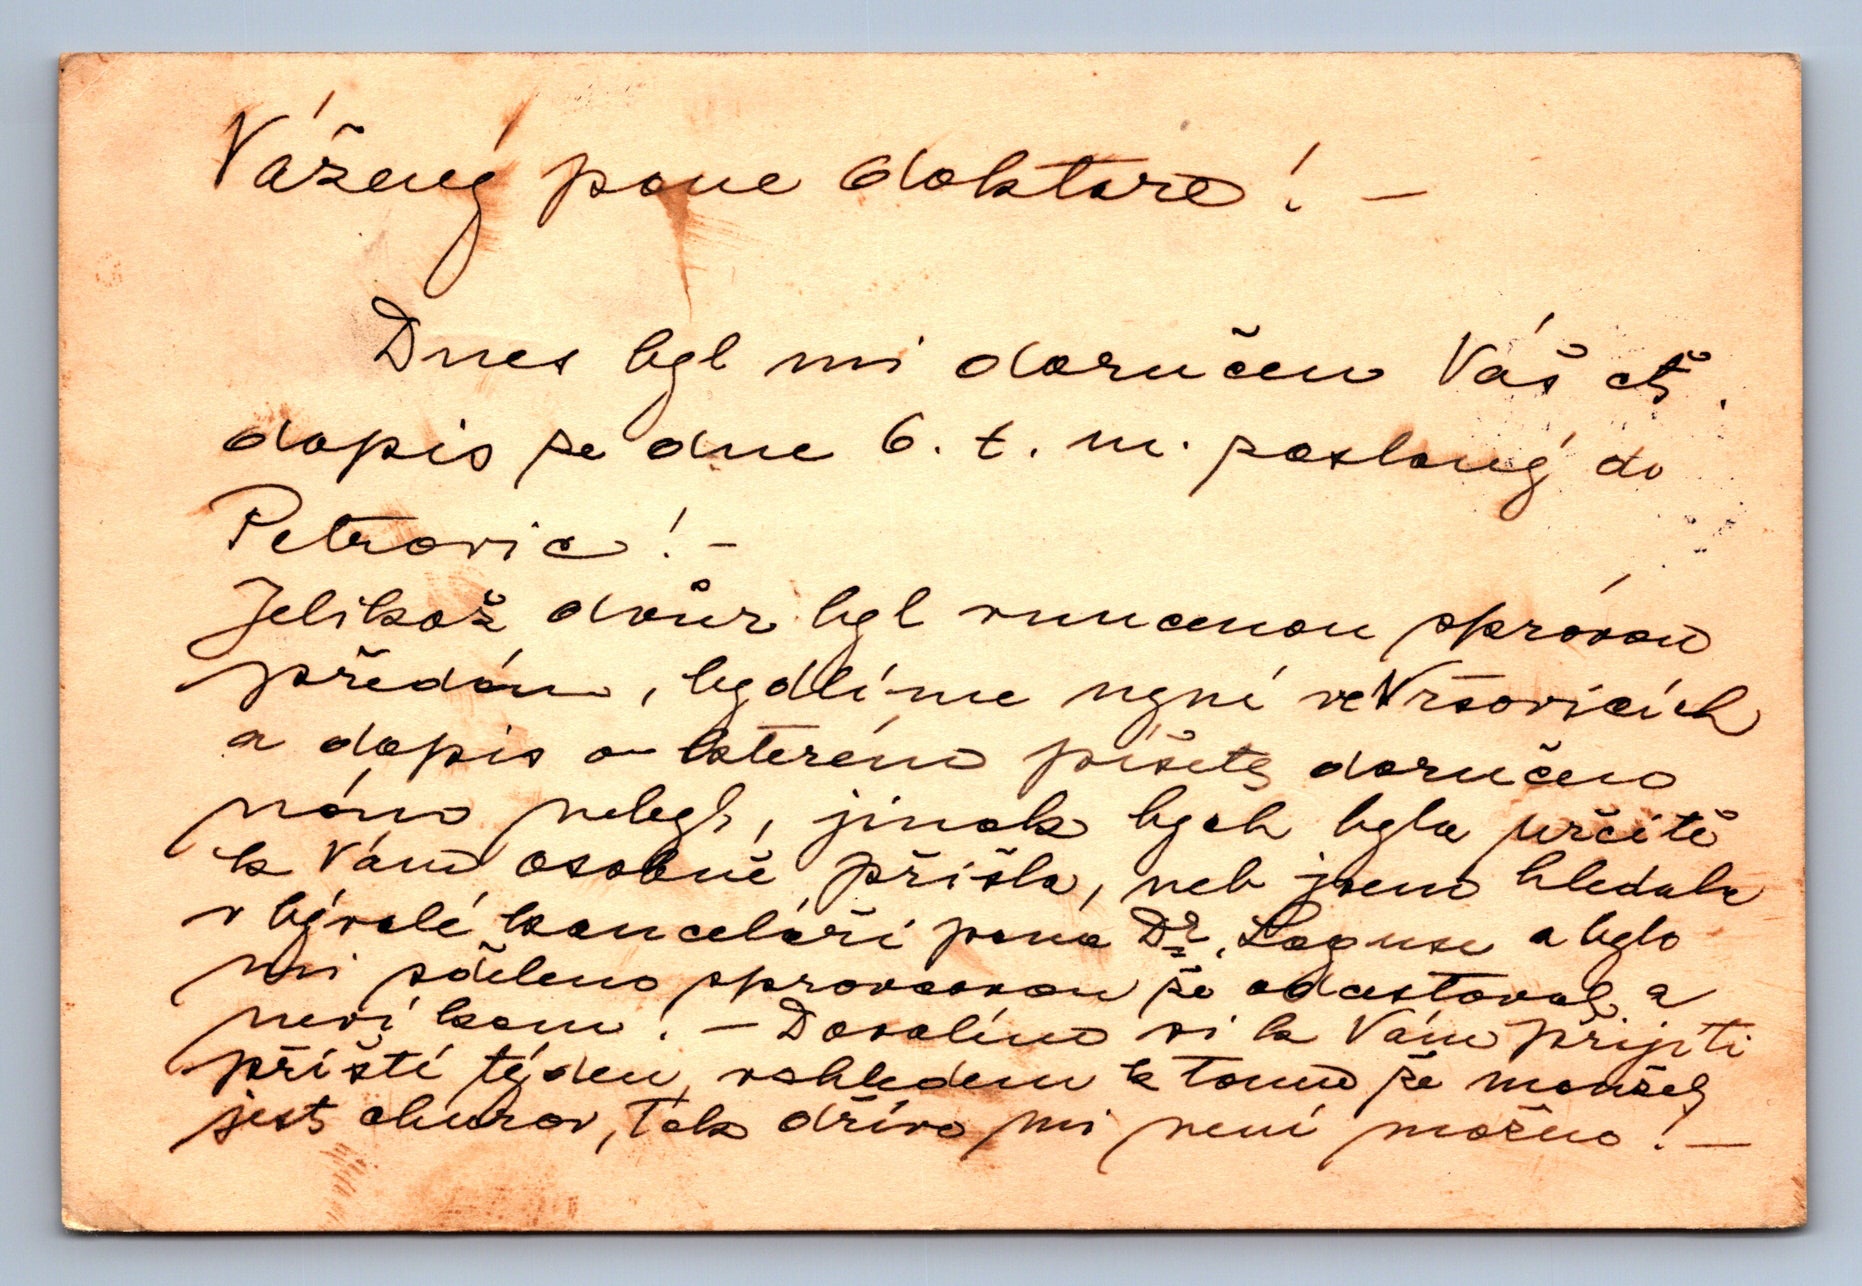 Vážený pane doktore! —
Dnes byl mi doručen Váš ct.
dopis ze dne 6. t. m. poslaný do
Petrovic! —
Jelikož dvůr byl vnucenou správou
předán, bydlíme nyní ve Vršovicích
a dopis o kterém píšete doručen
nám nebyl, jinak bych byla určitě
k Vám osobně přišla, neb jsem hledala
v bývalé kanceláři pana Dr. a bylo
mi sděleno správcovou že odcestoval a
neví kam! — Dovolím si k Vám přijíti
příští týden, vzhledem k tomu že manžel
jest churav, tak dříve mi není možno! —